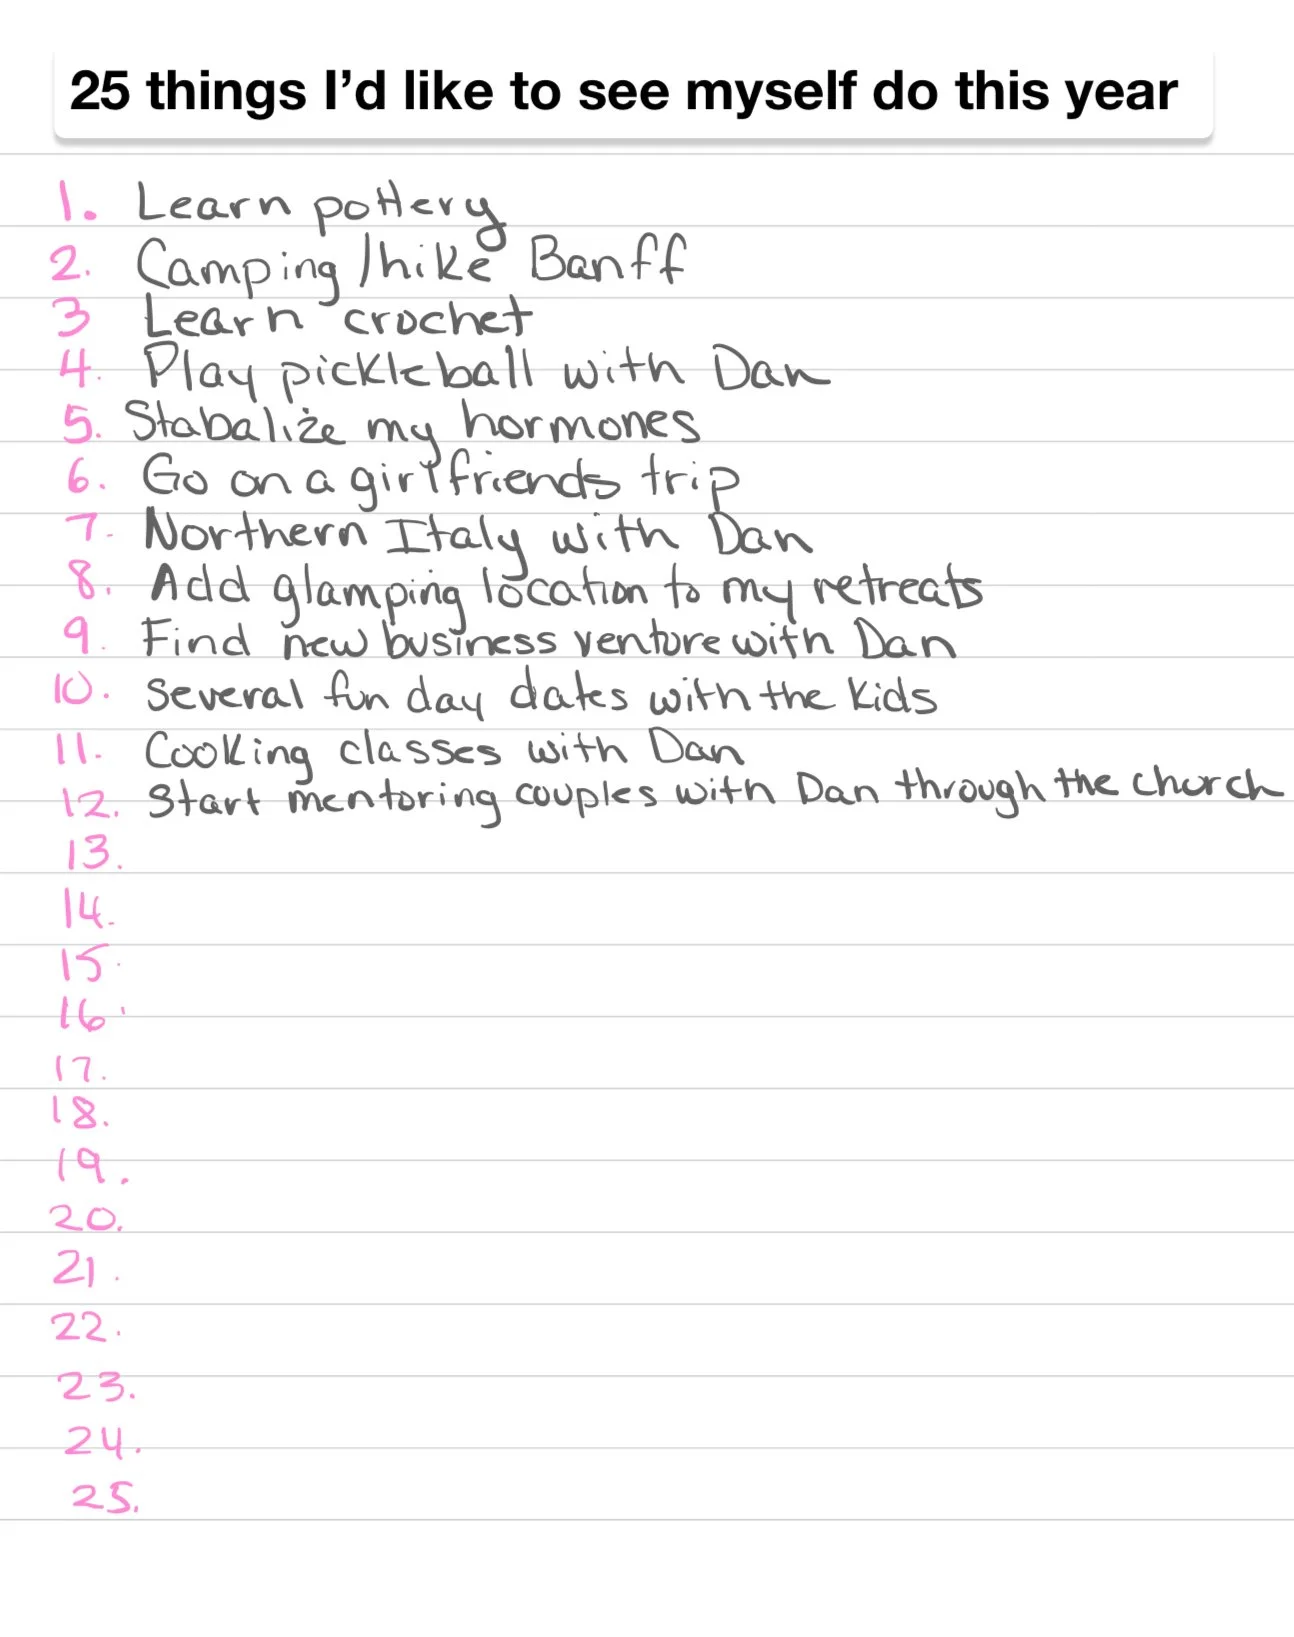 25 things I’d like to see myself do this year
1. Learn pottery
2. Camping/hike Banff
3 Learn crochet
4. Play pickleball with Dan
5. Stabalize my hormones
6. Go on a girlfriends trip
7. Northern Italy with Dan
8. Add glamping location to my retreats
9. Find new business venture with Dan
10. Several fun day dates with the kids
11. Cooking classes with Dan
12. Start mentoring couples with Dan through the church
13.
14.
15.
16.
17.
18.
19.
20.
21.
22.
23.
24.
25.